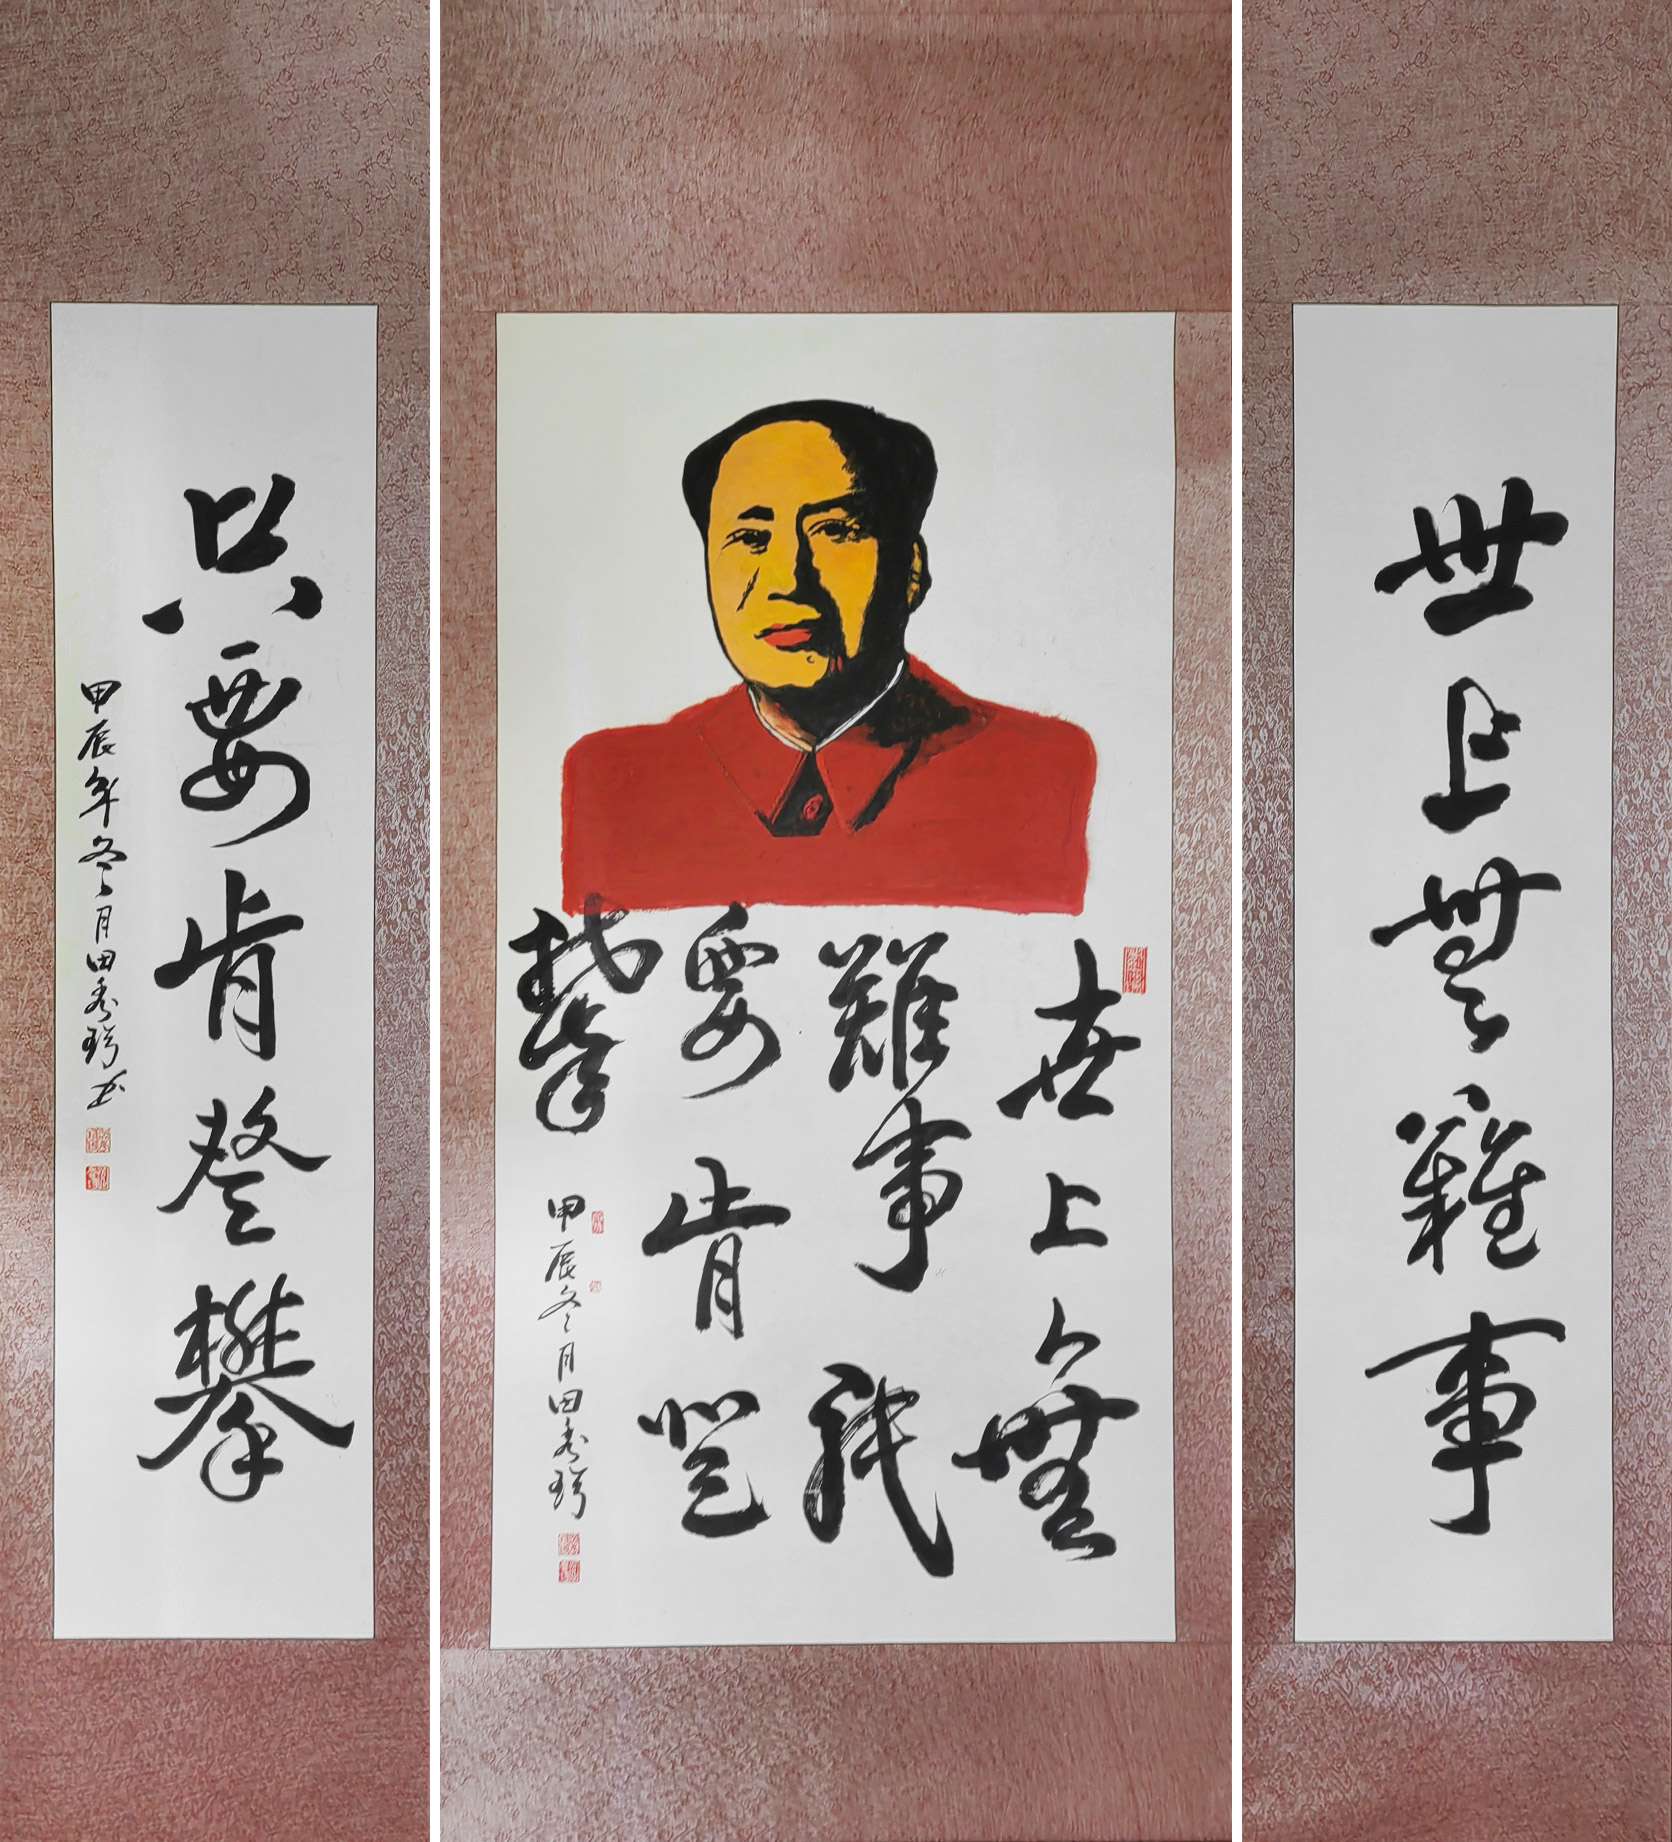 世上無難事
世上無
難事祇
要肯登
攀
甲辰冬月田秀
只要肯登攀
甲辰年冬月田秀书